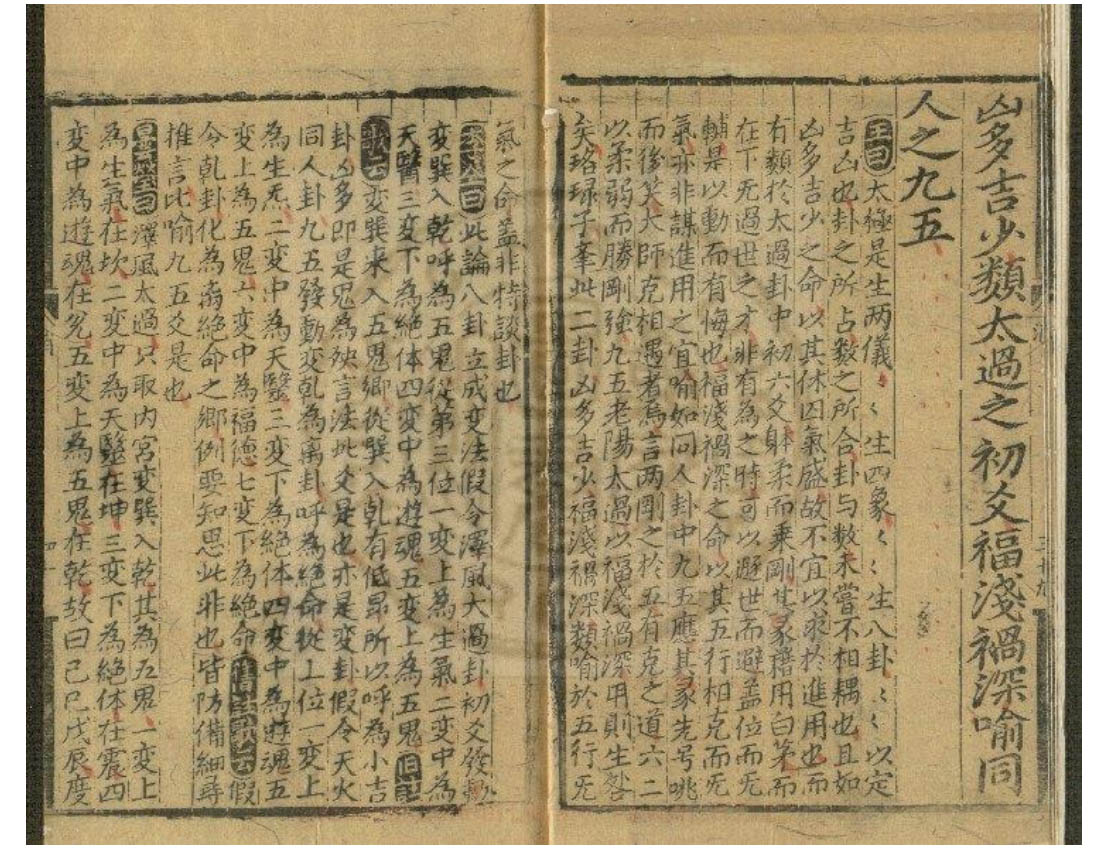 凶多吉少類太過之初爻福淺禍深喻同
人之九五
王曰太極是生两儀〻生四象〻〻生八卦〻〻以定
吉凶也卦之所占数之所合卦与数未嘗不相耦也且如
凶多吉少之命以其休囚氣盛故不宜以求於進用也而
有類於太過卦中初六爻躰柔而乗剛其彖藉用白茅而
在下无過世之才非有為之時可以避世而避盖位而无
輔是以動而有悔也福淺禍深之命以其五行相克而无
氣亦非謀進用之宜喻如同人卦中九五應其彖先号咷
而後笑大師克相遇者為言两剛之於五有克之道六二
以柔弱而勝剛強九五老陽太過以福淺禍深用則生咎
矣珞琭子牽此二卦凶多吉少福淺禍深類喻於五行无
氣之命盖非特談卦也
李仝曰此論八卦立成变法假令澤風大過卦初爻發動
变巽入乾呼為五鬼從第三位一变上為生氣二变中為
天醫三变下為絕体四变中為遊魂五变上為五鬼
歌云变巽来入五鬼郷從巽入乹有低昂所以呼為小吉
卦凶多即是鬼為殃言法此爻是也亦是变卦假令天火
同人卦九五發動变乹為离卦呼為絕命從上位一变上
為生炁二变中為天毉三变下為絕体四变中為遊魂五
变上為五鬼六变中為福德七变下為絕命 歌云假
令乹卦化為离絕命之郷例要知思此非也皆防備細尋
推言比喻九五爻是也
曇瑩曰澤風太過只取内宮变巽入乾其為五鬼一变上
為生氣在坎二变中為天毉在坤三变下為絕体在震四
变中為遊魂在兊五变上為五鬼在乾故曰己巳戊辰度